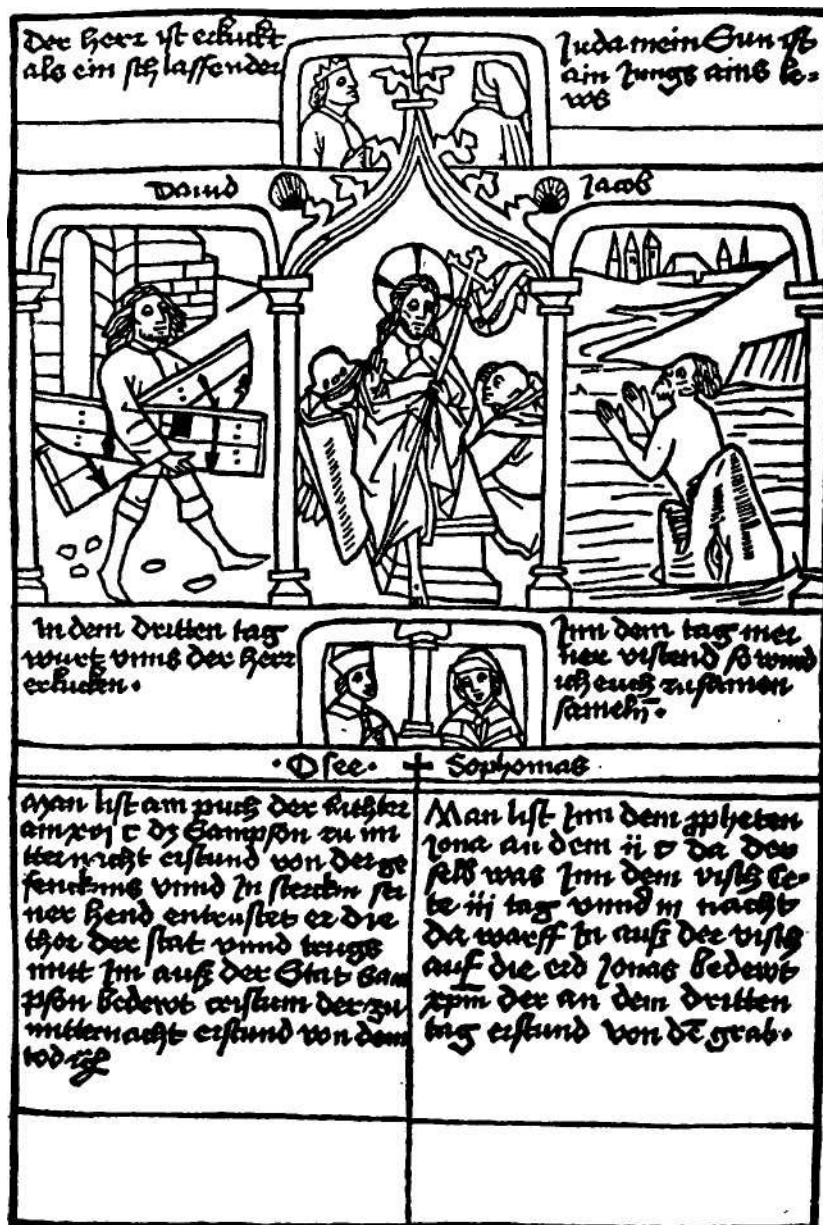 Der herr ist erkuckt
als ein schlaffender
Juda mein Sun ist
ain Jungs ains le=
ws
Dauid
Jacob
In dem dritten tag
wurt vnns der herr
erkucken.
Inn dem tag mei
ner vistend so wurd
ich euch zusamen
sameln̄.
·Osee· + Sophomas
Man list am puch der Richter
am xvi c dz Sampson zu mi
tternacht erstund von der ge
fencknus vnnd In stercken sei
ner hend entrüstet er die
thor der stat vnnd trugs
mitt Im auß der Stat Sam
pson bedewt cristum der zu
mitternacht erstund von dem
tod
Man list Inn dem ppheten
Jona an dem ii c da der
selb was Inn dem visch
iii tag vnnd in nacht
da warff In auß der visch
auf die erd Jonas bedewt
xpm̄ der an dem dritten
tag erstund von dē grab.